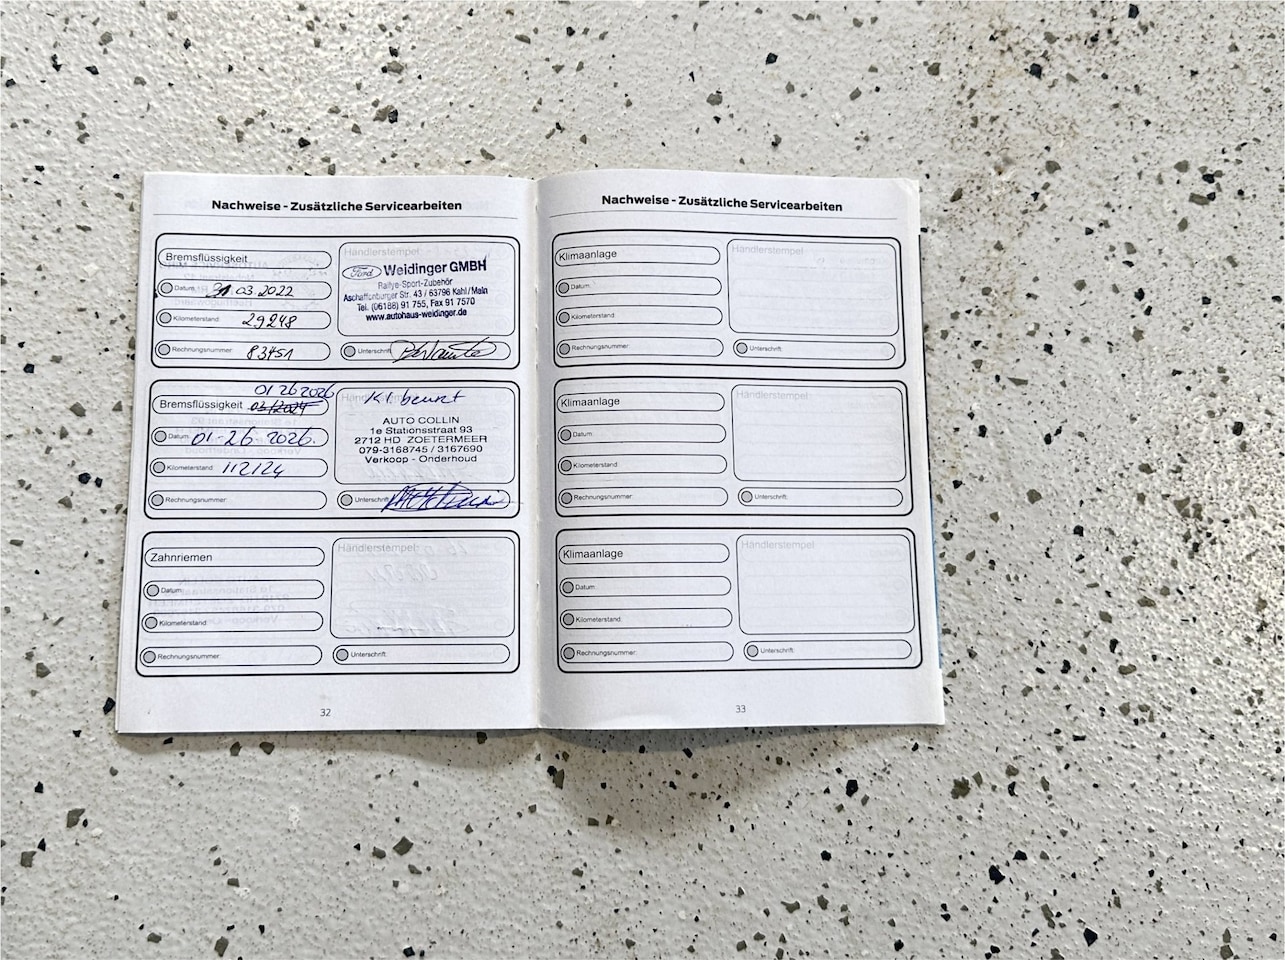 Nachweise - Zusätzliche Servicearbeiten
Bremsflüssigkeit
Datum: 31 03.2022
Kilometerstand: 29248
Rechnungsnummer: 83451
Händlerstempel
Ford Weidinger GMBH
Rallye-Sport-Zubehör
Aschaffenburger Str. 43 / 63796 Kahl/Main
Tel. (06188) 91 755, Fax 91 7570
www.autohaus-weidinger.de
Unterschrift:
01 26 2026
Bremsflüssigkeit 03/2024
Datum: 01-26-2026.
Kilometerstand: 112124
Rechnungsnummer:
AUTO COLLIN
1e Stationsstraat 93
2712 HD ZOETERMEER
079-3168745 / 3167690
Verkoop - Onderhoud
Unterschrift:
Zahnriemen
Datum:
Kilometerstand:
Rechnungsnummer:
Händlerstempel:
Unterschrift:
32
Nachweise - Zusätzliche Servicearbeiten
Klimaanlage
Datum:
Kilometerstand:
Rechnungsnummer:
Händlerstempel
Unterschrift:
Klimaanlage
Datum:
Kilometerstand:
Rechnungsnummer:
Händlerstempel
Unterschrift:
Klimaanlage
Datum:
Kilometerstand:
Rechnungsnummer:
Händlerstempel
Unterschrift:
33